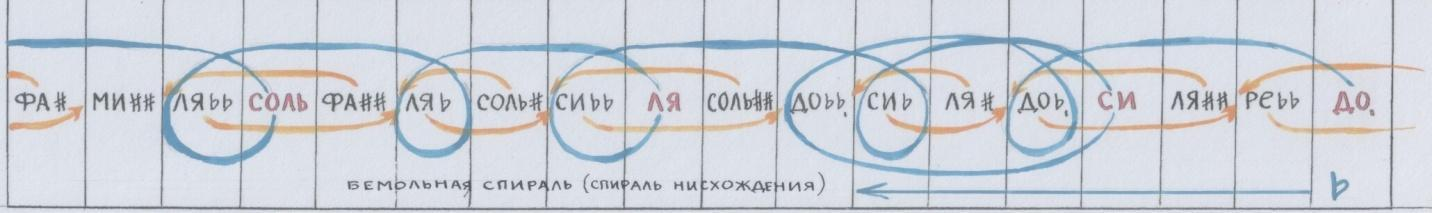 ФА# МИ## ЛЯbb СОЛЬ ФА## ЛЯb СОЛЬ# СИbb ЛЯ СОЛЬ## ДОbb. СИb ЛЯ# ДОb. СИ ЛЯ## РЕbb ДО.
БЕМОЛЬНАЯ СПИРАЛЬ (СПИРАЛЬ НИСХОЖДЕНИЯ) b